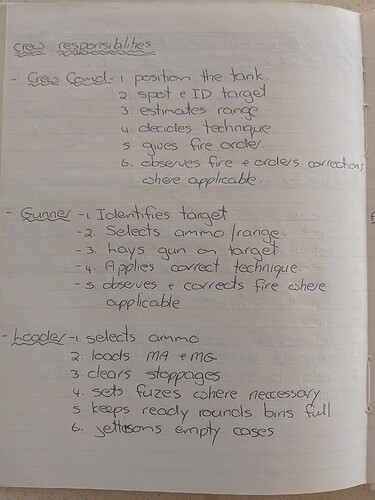 Crew responsibilities
- Crew Comd - 1. position the tank.
2. spot & ID target
3. estimates range
4. decides technique
5. gives fire order.
6. observes fire & orders corrections
where applicable.
- Gunner - 1. Identifies target
- 2. Selects ammo/range.
- 3. Lays gun on target
- 4. Applies correct technique
- 5. observes & corrects fire where
applicable
- Loader - 1. selects ammo
2. loads MA & MG
3. clears stoppages
4. sets fuzes where neccessary
5. keeps ready rounds bins full
6. jettisons empty cases